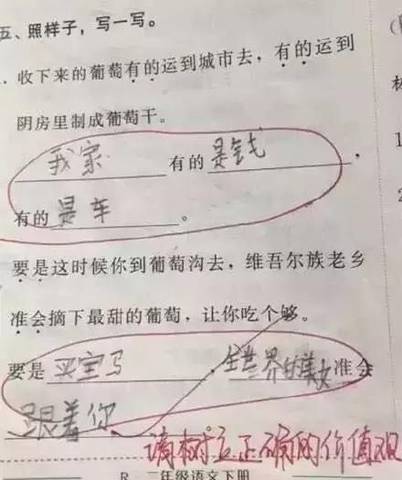 五、照样子，写一写。
. 收下来的葡萄有的运到城市去，有的运到
阴房里制成葡萄干。
我家有的是钱，
有的是车。
要是这时候你到葡萄沟去，维吾尔族老乡
准会摘下最甜的葡萄，让你吃个够。
要是买宝马，全世界的美女准会
跟着你
请树立正确的价值观
R 二年级语文下册